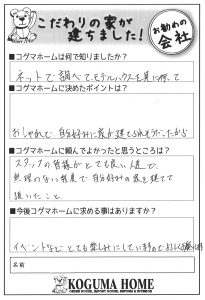 こだわりの家が
建ちました!
お勧めの
会社
■コグマホームは何で知りましたか?
ネットで調べてモデルハウスを見に行って
■コグマホームに決めたポイントは?
おしゃれで自分好みに家が建てられそうだったから
■コグマホームに頼んでよかったと思うところは?
スタッフの皆様がとても良い人達で、
無理のない程度で自分好みの家を建てて
頂いたこと
■今後コグマホームに求める事はありますか?
イベントなどとても楽しみにしていますので
名前
KOGUMA HOME